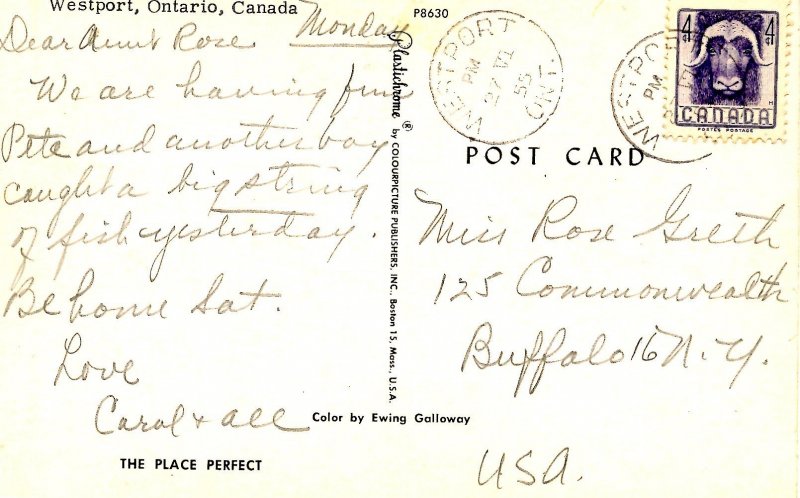 Westport, Ontario, Canada
Monday
Dear Aunt Rose
We are having fun
Pete and another boy
caught a big string
of fish yesterday.
Be home Sat.
Love
Carol & all
THE PLACE PERFECT
Plastichrome ® by COLOURPICTURE PUBLISHERS, INC., Boston 15, Mass., U.S.A.
Color by Ewing Galloway
P8630
WESTPORT ONT.
PM
27 VI
55
WESTPORT
PM
4¢ 4¢
CANADA
POSTES POSTAGE
POST CARD
Miss Rose Greth
125 Commonwealth
Buffalo 16 N.Y.
USA.